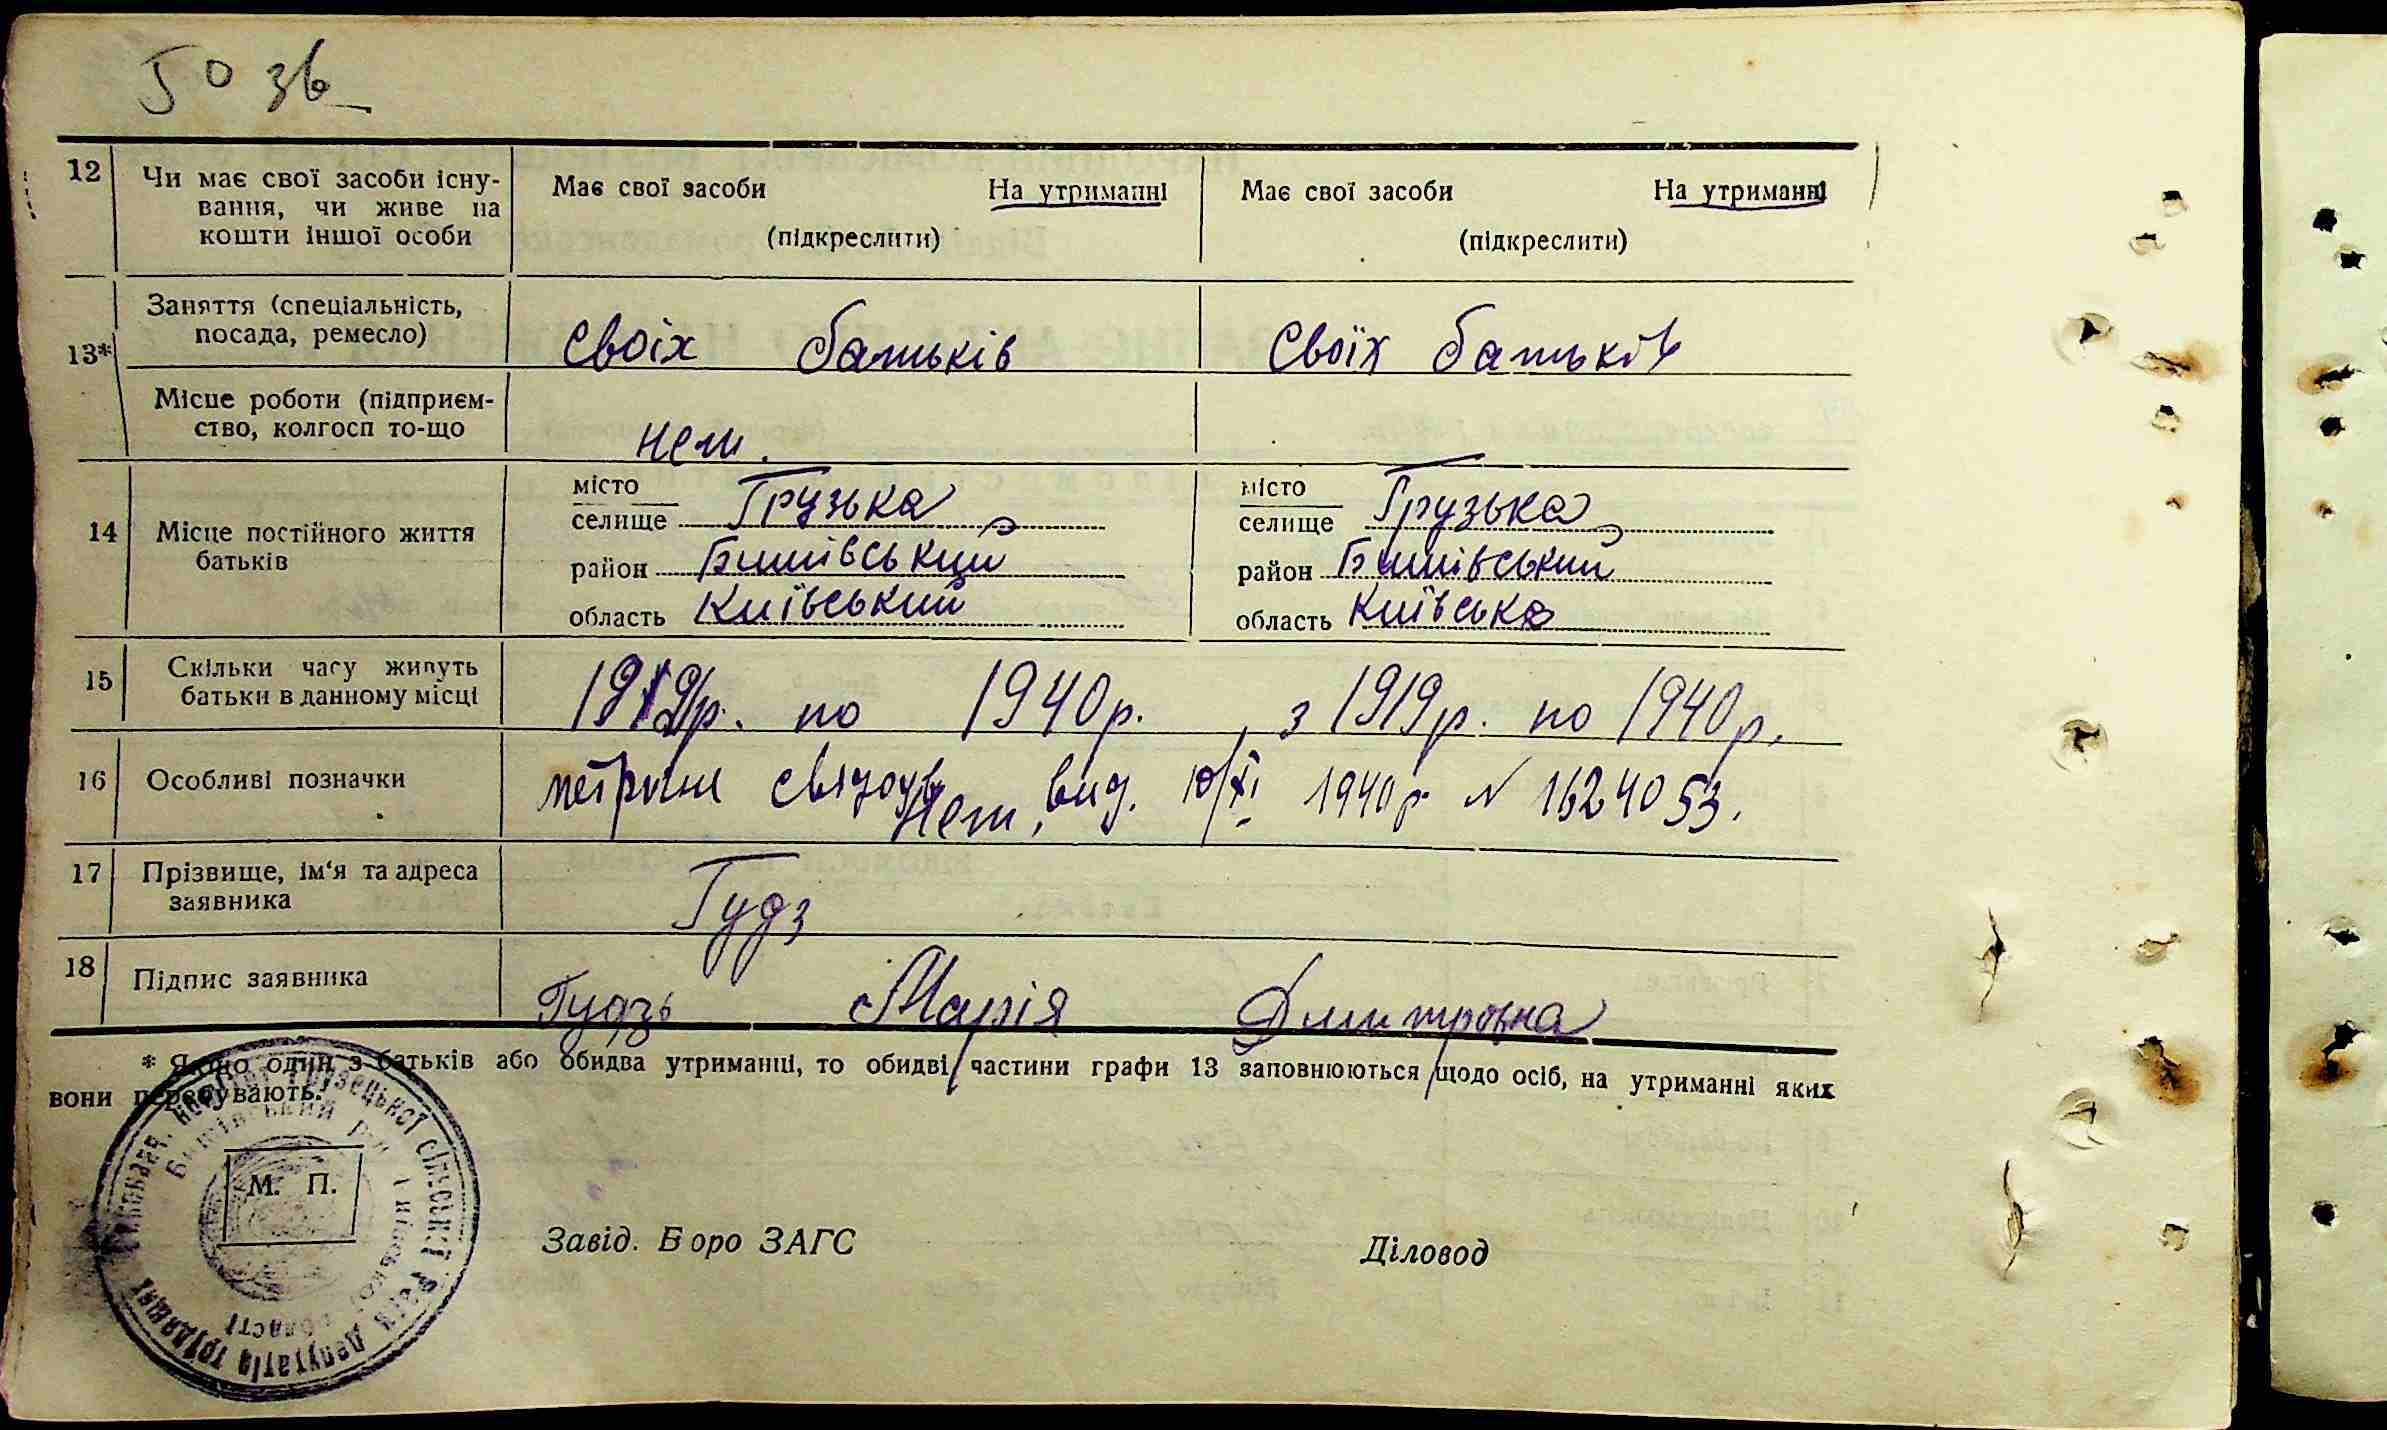 50 зв
12 Чи має свої засоби існу-
вання, чи живе на
кошти іншої особи
Має свої засоби На утриманні
(підкреслити)
Має свої засоби На утриманні
(підкреслити)
13* Заняття (спеціальність,
посада, ремесло)
своіх батьків
своїх батьків
Місце роботи (підприєм-
ство, колгосп то-що
нет.
14 Місце постійного життя
батьків
місто
селище Грузька
район Бишівський
область Київський
місто
селище Грузька
район Бишівський
область Київська
15 Скільки часу живуть
батьки в данному місці
1919р. по 1940р. , з 1919р. по 1940р.
16 Особливі позначки
нет, вид. 10/XI 1940р. N 1624053.
17 Прізвище, ім'я та адреса
заявника
Гудз
18 Підпис заявника
Гудзь Марія Дмитровна
* Якщо один з батьків або обидва утриманці, то обидві частини графи 13 заповнюються щодо осіб, на утриманні яких
вони перебувають.
Грузецької сільської Ради депутатів трудящих
Бишівський р-н Київської області
М. П.
Завід. Бюро ЗАГС
Діловод